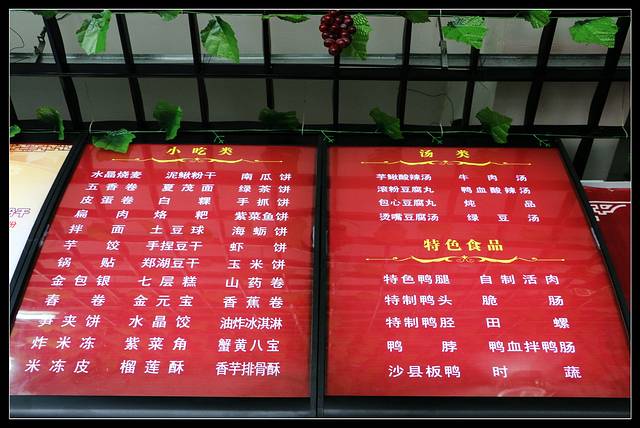 小吃类
水晶烧麦 泥鳅粉干 南瓜饼
五香卷 夏茂面 绿茶饼
皮蛋卷 白粿 手抓饼
扁肉 烙粑 紫菜鱼饼
拌面 土豆球 海蛎饼
芋饺 手捏豆干 虾饼
锅贴 郑湖豆干 玉米饼
金包银 七层糕 山药卷
春卷 金元宝 香蕉卷
笋夹饼 水晶饺 油炸冰淇淋
炸米冻 紫菜角 蟹黄八宝
米冻皮 榴莲酥 香芋排骨酥
汤类
芋鳅酸辣汤 牛肉汤
滚粉豆腐丸 鸭血酸辣汤
包心豆腐丸 炖品
烫嘴豆腐汤 绿豆汤
特色食品
特色鸭腿 自制活肉
特制鸭头 脆肠
特制鸭胫 田螺
鸭脖 鸭血拌鸭肠
沙县板鸭 时蔬